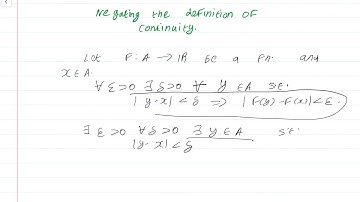 Negating the definition OF
continuity.
Let F: A → IR be a Fn. and
x ∈ A.
∀ ε > 0 ∃ δ > 0 ∀ y ∈ A s.t.
| y - x | < δ ⟹ | F(y) - F(x) | < ε.
∃ ε > 0 ∀ δ > 0 ∃ y ∈ A s.t.
| y - x | < δ